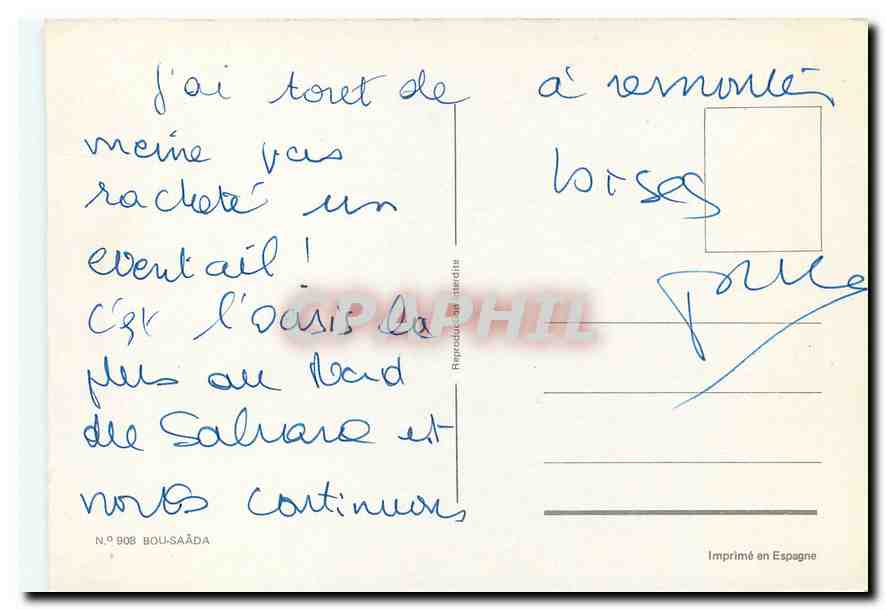 J'ai toret de
meme pas
racheté un
eventail !
c'est l'Oasis la
plus au Nord
du Sahara et
nous continuons
à remonter
bises
Reproduction interdite
CPAPHIL
N.º 908 BOU-SAÂDA
Imprimé en Espagne